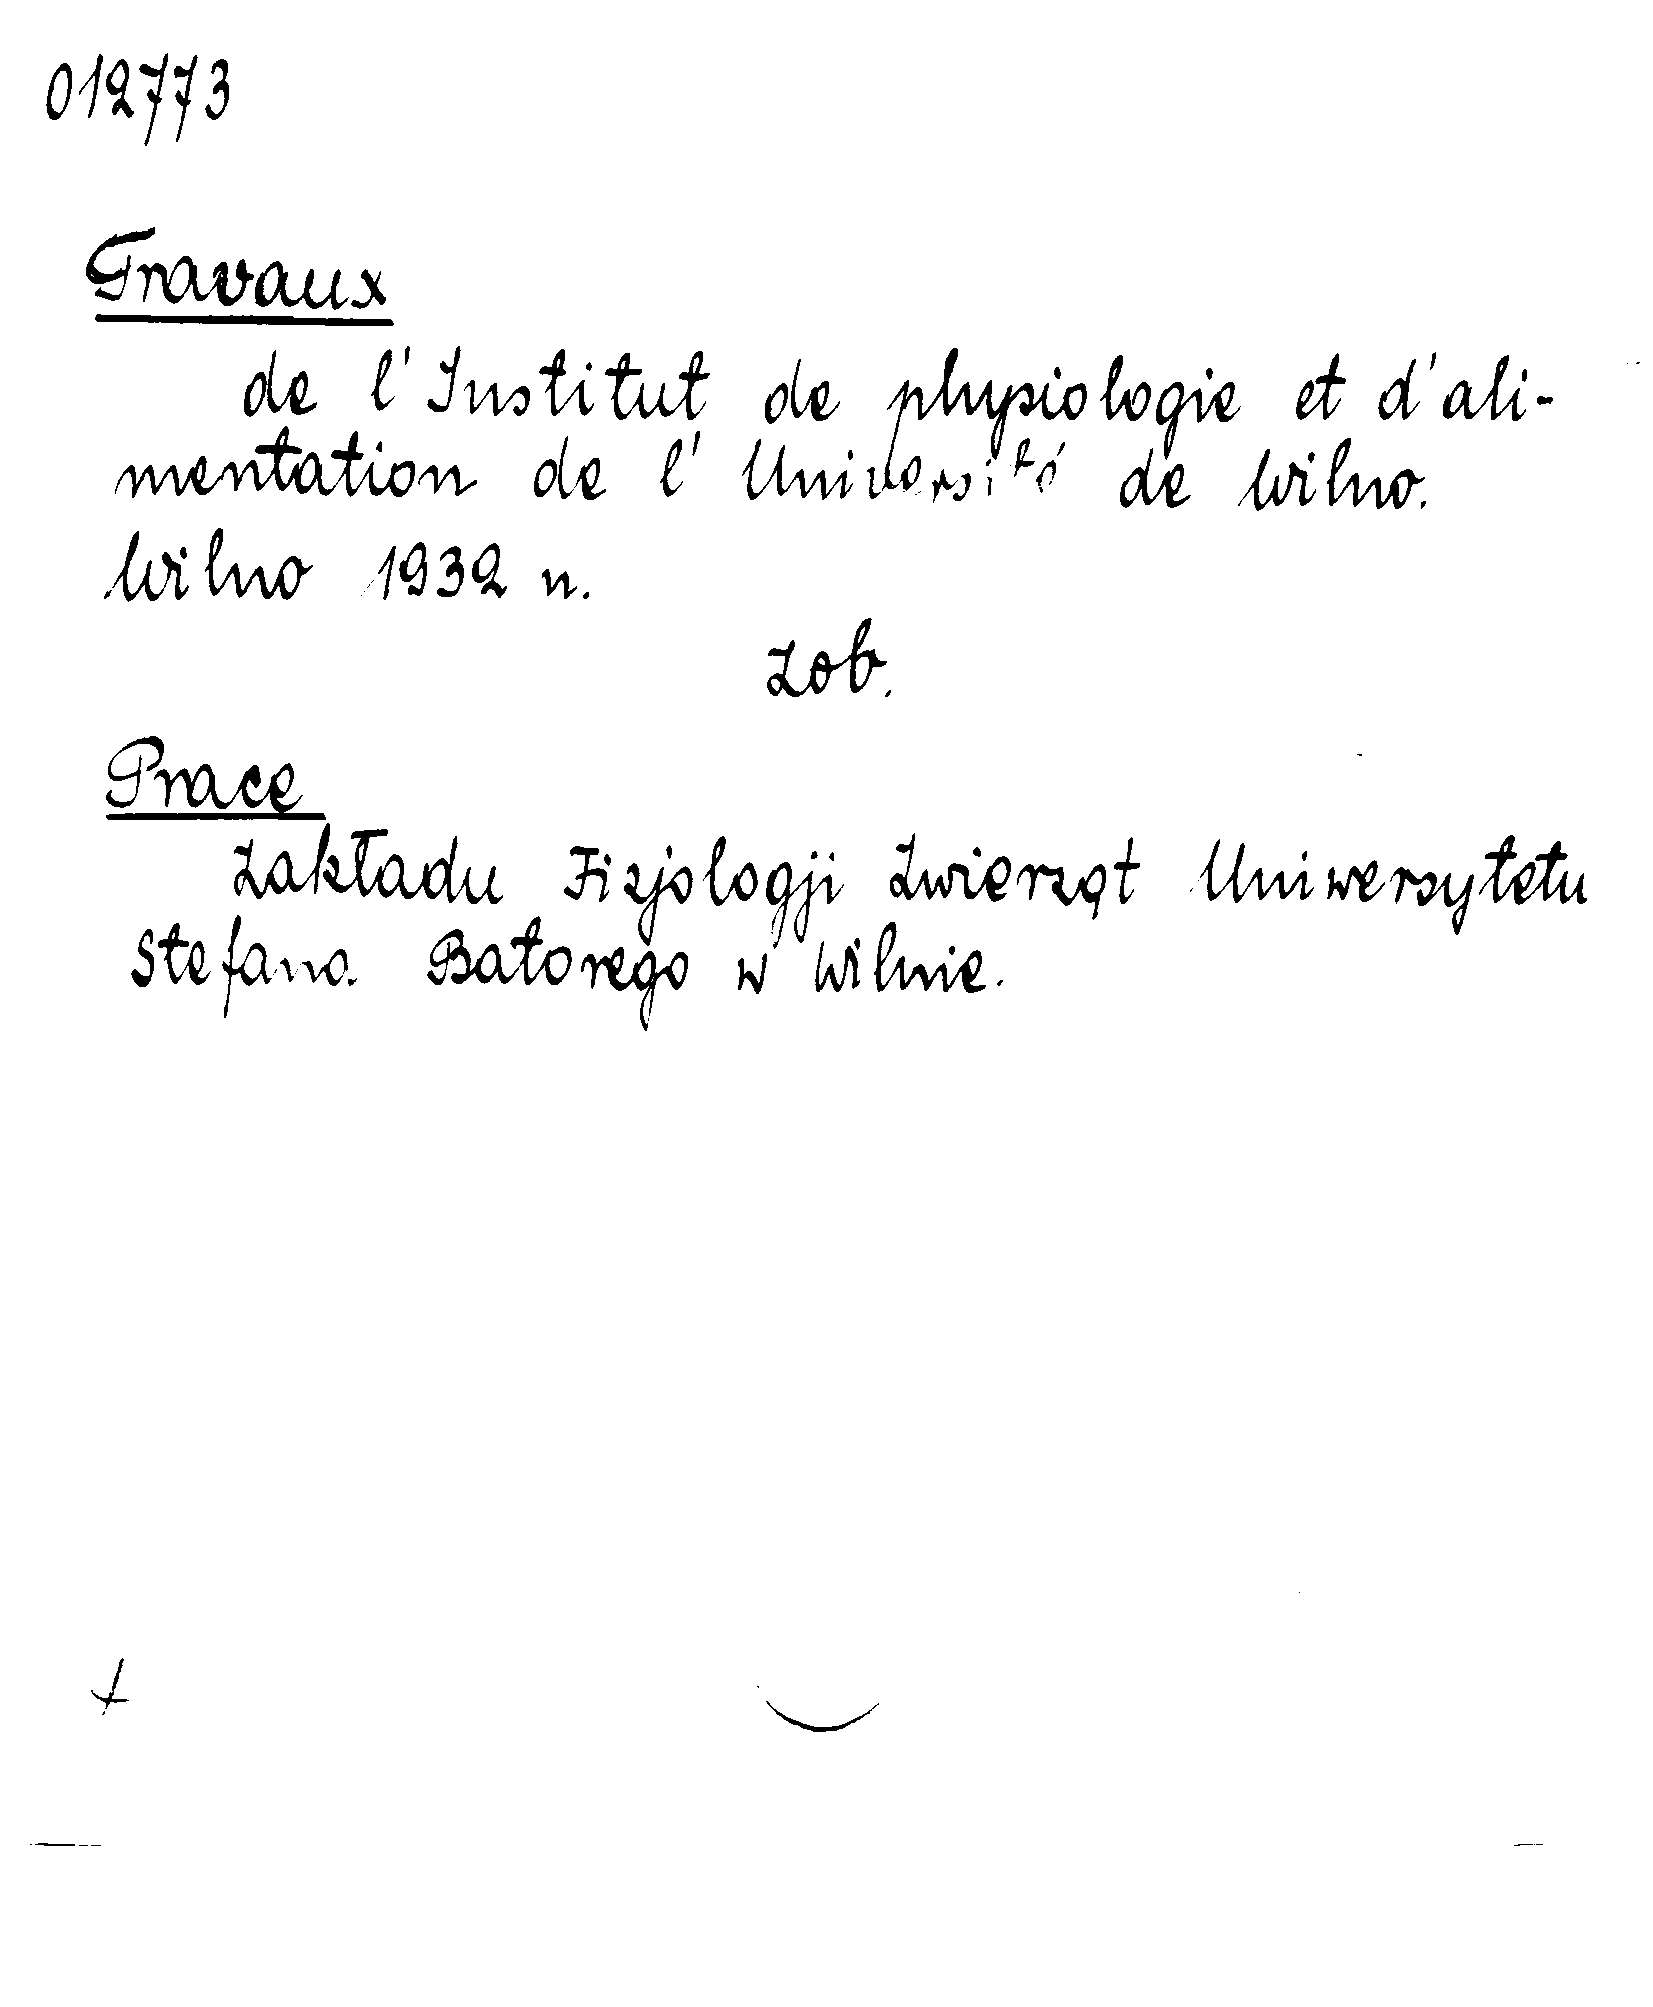 012773
Travaux
de l'Institut de physiologie et d'ali-
mentation de l'Université de Wilno.
Wilno 1932 r.
Zob.
Prace
Zakładu Fizjologji Zwierząt Uniwersytetu
Stefana Batorego w Wilnie.